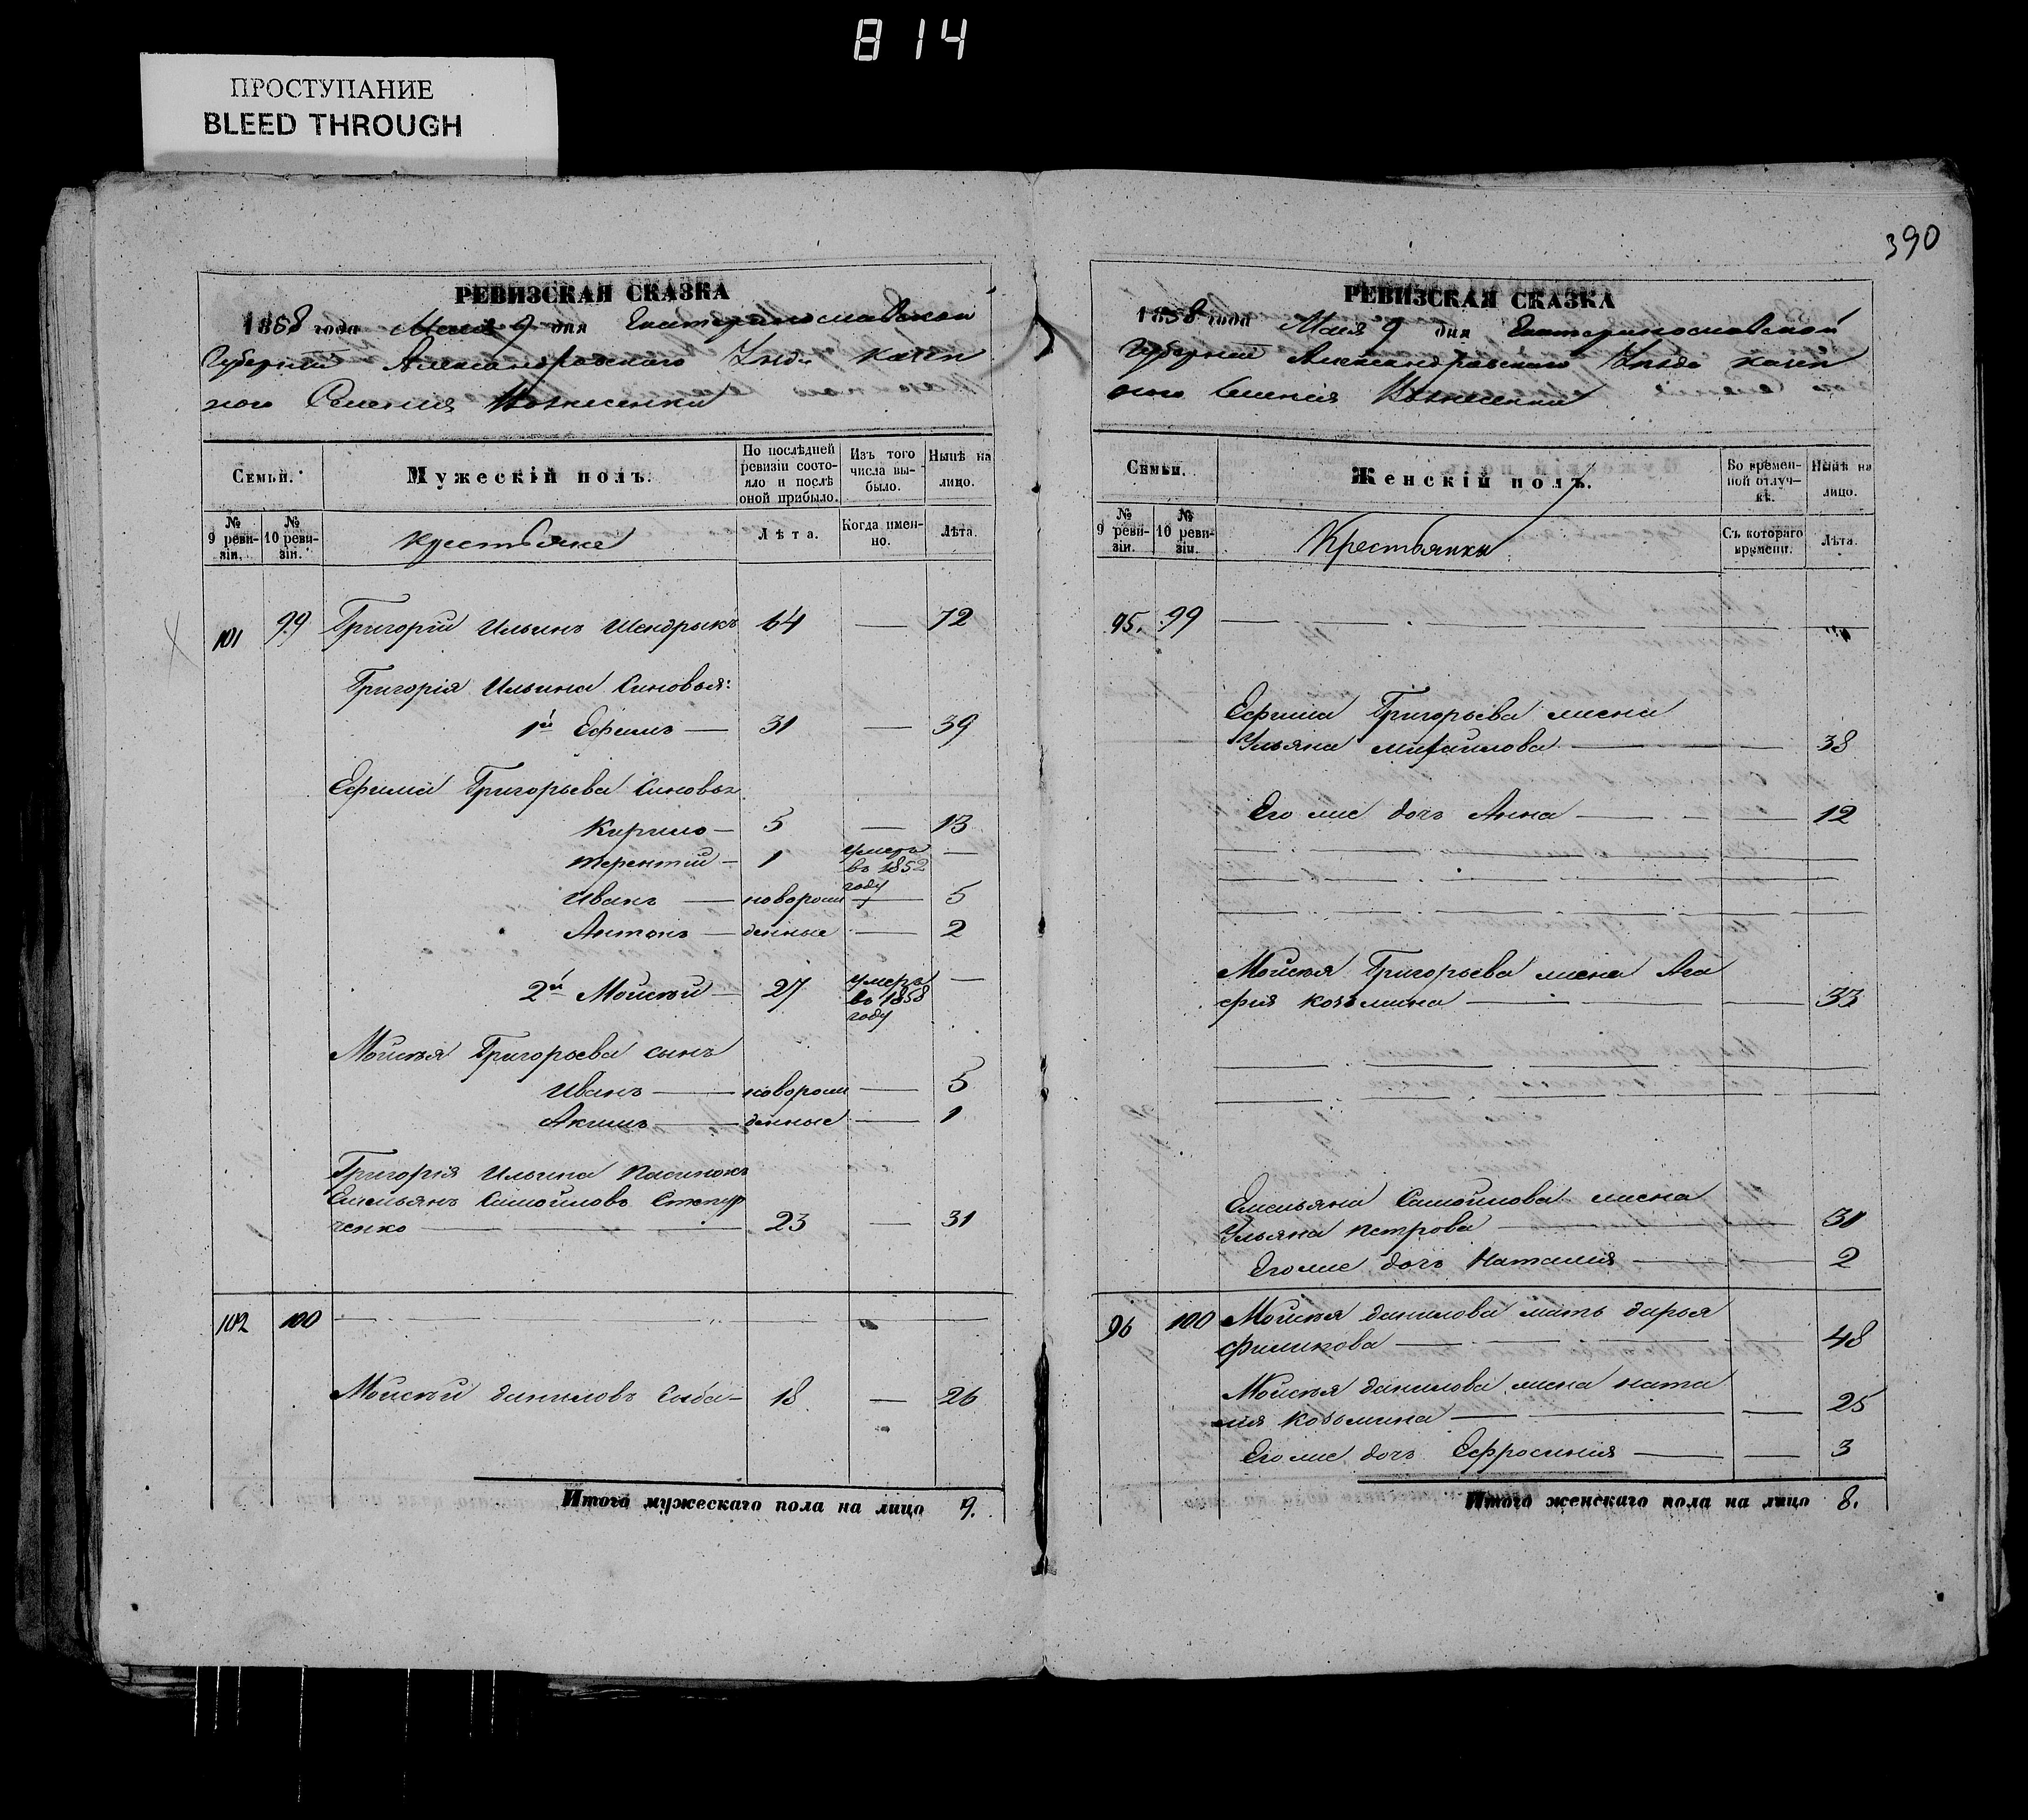 814
ПРОСТУПАНИЕ
BLEED THROUGH
390
РЕВИЗСКАЯ СКАЗКА
1858 года Мая 9 дня Екатеринославской
Губернии Александровскаго Уезда казен
наго Селения Вознесенки
Семьи.
Мужескій полъ.
По послѣдней ревизіи состояло и послѣ оной прибыло.
Изъ того числа выбыло.
Нынѣ на лицо.
№ 9 ревизіи.
№ 10 ревизіи.
Крестьяне
Лѣта.
Когда именно.
Лѣта.
101 99 Григорій Ильинъ Шендрыкъ 64 — 72
Григорія Ильина Сыновья:
1й Ефимъ — 31 — 39
Ефима Григорьева Сыновья
Кирило — 5 — 13
Терентій — 1 умеръ въ 1852 году —
Иванъ — новорож — 5
Антонъ — денные — 2
2й Моисѣй — 27 умеръ въ 1858 году —
Моисѣя Григорьева сынъ
Иванъ — новорож — 5
Акимъ — денные — 1
Григорія Ильина пасинокъ
Емельянъ Самойловъ
ченко — 23 — 31
102 100 —
Моисѣй Даниловъ — 18 — 26
Итого мужескаго пола на лицо 9.
РЕВИЗСКАЯ СКАЗКА
1858 года Мая 9 дня Екатеринославской
Губерніи Александровскаго Уезда казен
ного Селенія Вознесенки
Семьи.
Женскій полъ.
Во временной отлучкѣ.
Нынѣ на лицо.
№ 9 ревизіи.
№ 10 ревизіи.
Крестьянки
Съ котораго времени.
Лѣта.
95. 99 —
Ефима Григорьева жена
Ульяна Михайлова — 38
Его же дочь Анна — 12
Моисѣя Григорьева жена Ага
фія Козьмина — 33
Емельяна Самойлова жена
Ульяна Петрова — 31
Его же дочь Наталия — 2
96 100 Моисѣя Данилова мать Дарья
Филипова — 48
Моисѣя Данилова жена Ната
лия Козьмина — 25
Его же дочь Ефросиния — 3
Итого женскаго пола на лицо 8.